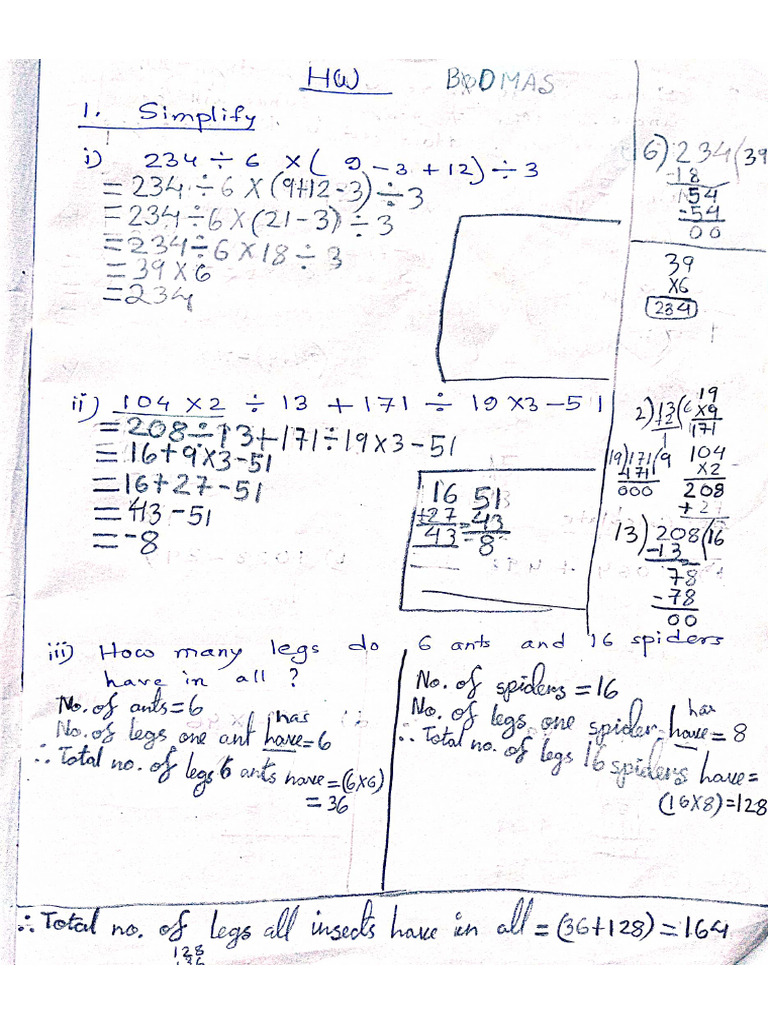 HW BODMAS
1. Simplify
i) 234 ÷ 6 × ( 9 - 3 + 12) ÷ 3
= 234 ÷ 6 × (9+12-3) ÷ 3
= 234 ÷ 6 × (21-3) ÷ 3
= 234 ÷ 6 × 18 ÷ 3
= 39 × 6
= 234
6) 234 (39
-18
54
-54
00
39
×6
234
ii) 104 × 2 ÷ 13 + 171 ÷ 19 × 3 - 51
= 208 ÷ 13 + 171 ÷ 19 × 3 - 51
= 16 + 9 × 3 - 51
= 16 + 27 - 51
= 43 - 51
= -8
16
+27
43
51
-43
-8
19
×9
171
2) 13 (6
12
1
19) 171 (9
171
000
104
×2
208
13) 208 (16
-13
78
-78
00
iii) How many legs do 6 ants and 16 spiders
have in all ?
No. of ants = 6
has
No. of legs one ant have = 6
∴ Total no. of legs 6 ants have = (6×6)
= 36
No. of spiders = 16
has
No. of legs one spider have = 8
∴ Total no. of legs 16 spiders have =
(16×8) = 128
∴ Total no. of legs all insects have in all = (36+128) = 164
128